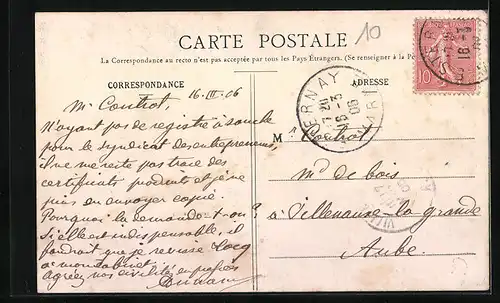 10
CARTE POSTALE
La Correspondance au recto n'est pas acceptée par tous les Pays Étrangers. (Se renseigner à la
CORRESPONDANCE
ADRESSE
16-III-06
Mr Coutrot,
N'ayant pas de registre à souche
pour le syndicat des entrepreneurs,
il ne me reste pas trace des
certificats produits et je ne
puis en envoyer copie.
Pourquoi la demande-t-on?
Si elle est indispensable, il
faudrait que je revisse
à mon cabinet
Agréez nos civilités empressées
M r Coutrot
md de bois
à Villenauxe-la-grande
Aube
EPERNAY
7 20
16 -3
06
MARNE
10